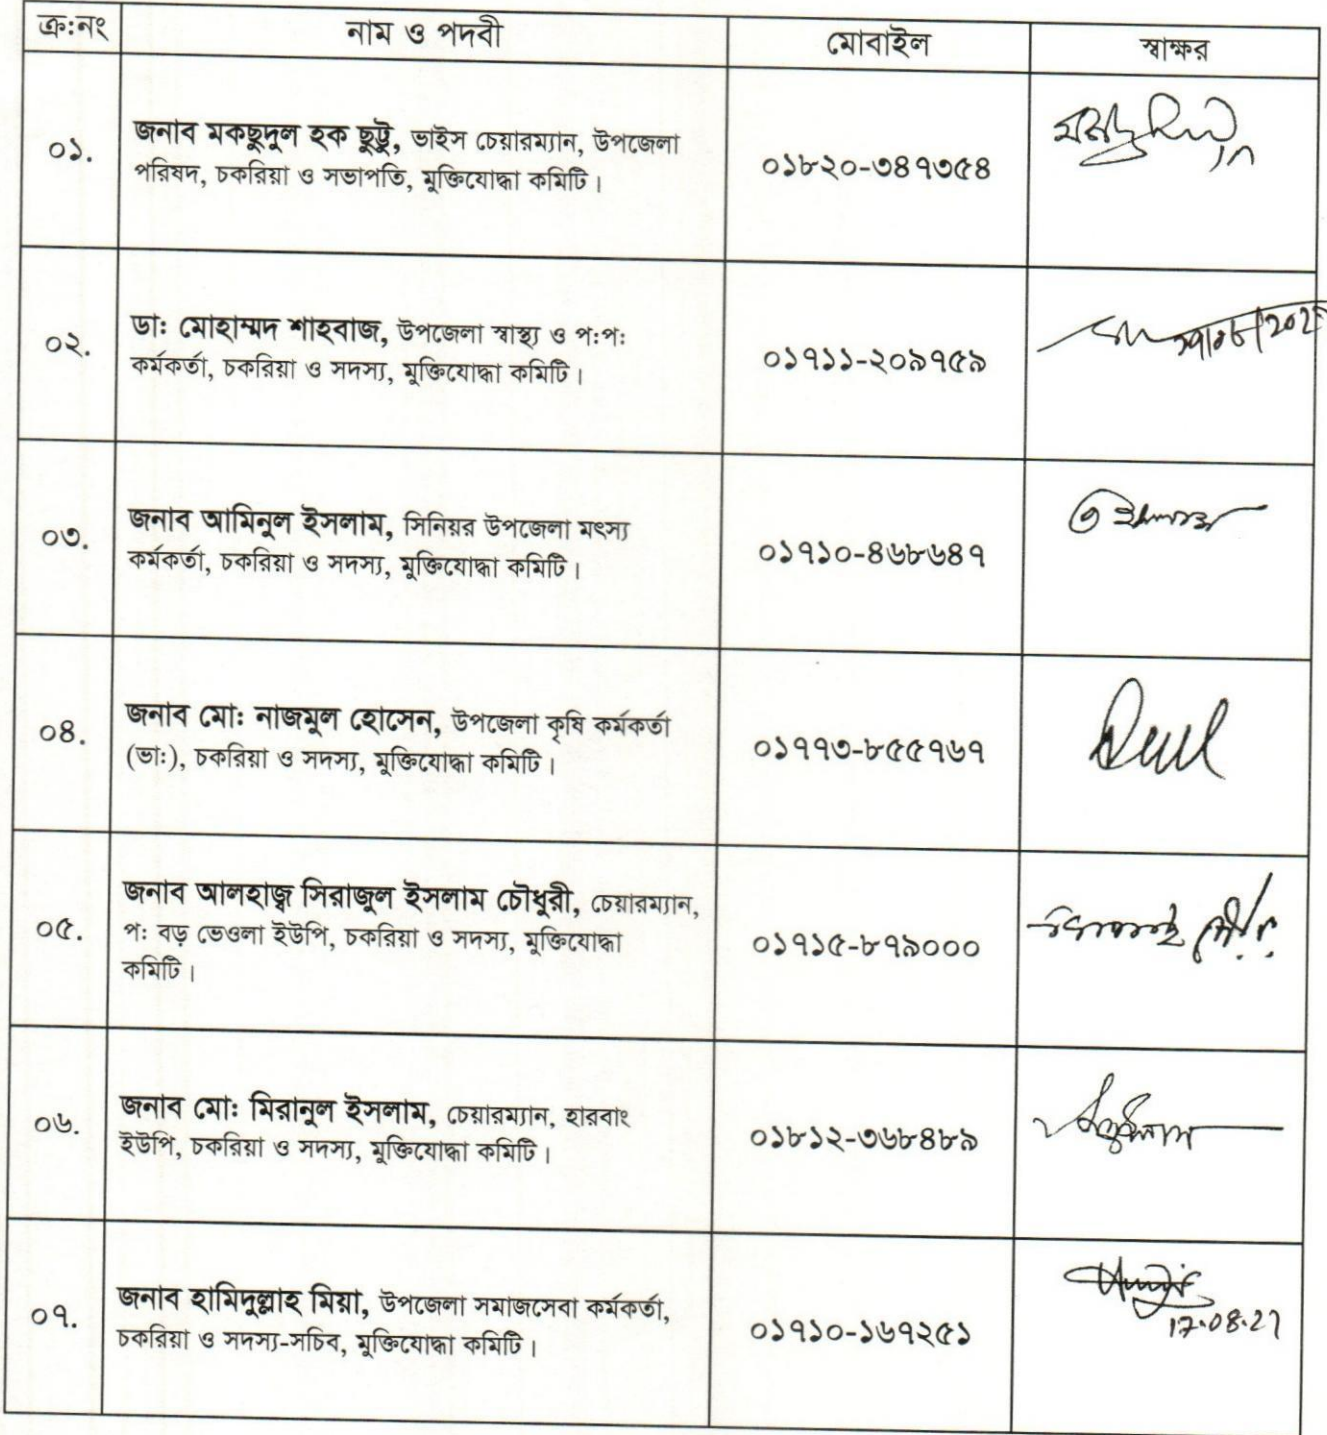 ক্র:নং নাম ও পদবী মোবাইল স্বাক্ষর
০১. জনাব মকছুদুল হক ছুট্টু, ভাইস চেয়ারম্যান, উপজেলা
পরিষদ, চকরিয়া ও সভাপতি, মুক্তিযোদ্ধা কমিটি।
০১৮২০-৩৪৭৩৫৪
০২. ডা: মোহাম্মদ শাহবাজ, উপজেলা স্বাস্থ্য ও প:প:
কর্মকর্তা, চকরিয়া ও সদস্য, মুক্তিযোদ্ধা কমিটি।
০১৭১১-২০৯৭৫৯
০৩. জনাব আমিনুল ইসলাম, সিনিয়র উপজেলা মৎস্য
কর্মকর্তা, চকরিয়া ও সদস্য, মুক্তিযোদ্ধা কমিটি।
০১৭১০-৪৬৮৬৪৭
০৪. জনাব মো: নাজমুল হোসেন, উপজেলা কৃষি কর্মকর্তা
(ভা:), চকরিয়া ও সদস্য, মুক্তিযোদ্ধা কমিটি।
০১৭৭৩-৮৫৫৭৬৭
০৫. জনাব আলহাজ্ব সিরাজুল ইসলাম চৌধুরী, চেয়ারম্যান,
প: বড় ভেওলা ইউপি, চকরিয়া ও সদস্য, মুক্তিযোদ্ধা
কমিটি।
০১৭১৫-৮৭৯০০০
০৬. জনাব মো: মিরানুল ইসলাম, চেয়ারম্যান, হারবাং
ইউপি, চকরিয়া ও সদস্য, মুক্তিযোদ্ধা কমিটি।
০১৮১২-৩৬৮৪৮৯
০৭. জনাব হামিদুল্লাহ মিয়া, উপজেলা সমাজসেবা কর্মকর্তা,
চকরিয়া ও সদস্য-সচিব, মুক্তিযোদ্ধা কমিটি।
০১৭১০-১৬৭২৫১
17.08.21